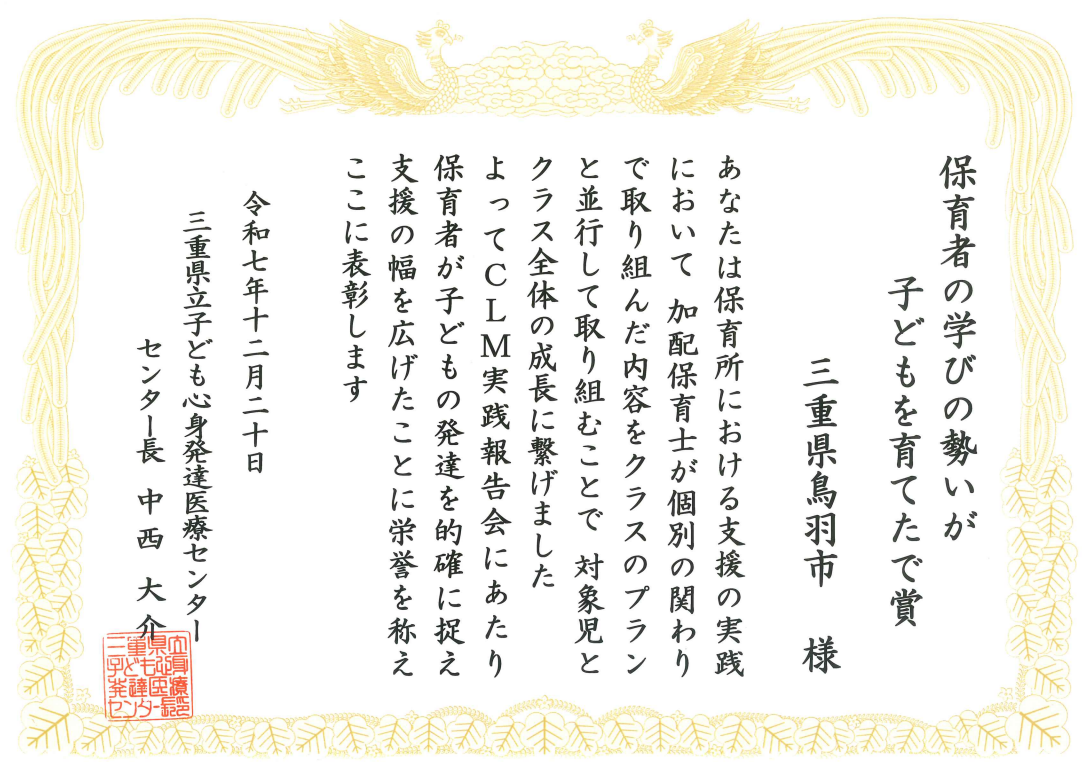 保育者の学びの勢いが
子どもを育てたで賞
三重県鳥羽市 様
あなたは保育所における支援の実践
において 加配保育士が個別の関わり
で取り組んだ内容をクラスのプラン
と並行して取り組むことで 対象児と
クラス全体の成長に繋げました
よってCLM実践報告会にあたり
保育者が子どもの発達を的確に捉え
支援の幅を広げたことに栄誉を称え
ここに表彰します
令和七年十二月二十日
三重県立子ども心身発達医療センター
センター長 中西 大介